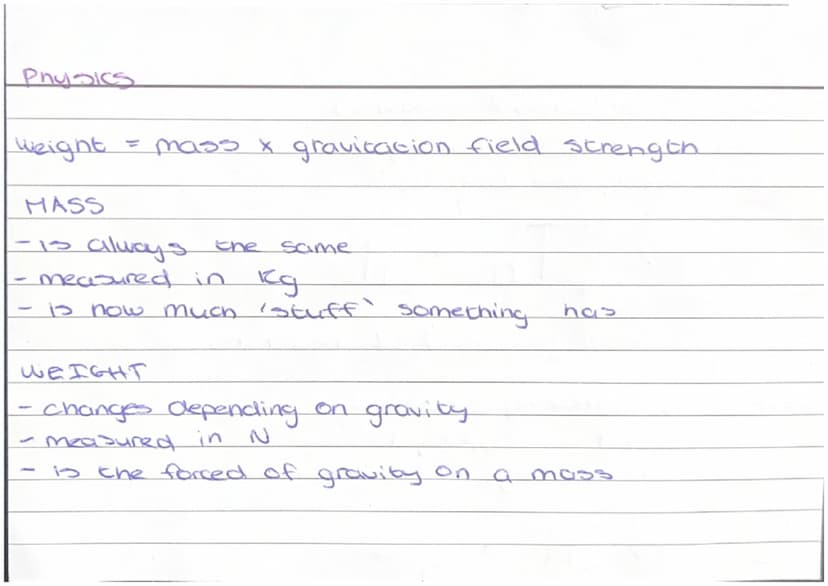 Physics
Weight = mass x gravitation field strength
MASS
- is always the same
- measured in Kg
- is how much 'stuff' something has
WEIGHT
- changes depending on gravity
- measured in N
- is the forced of gravity on a mass